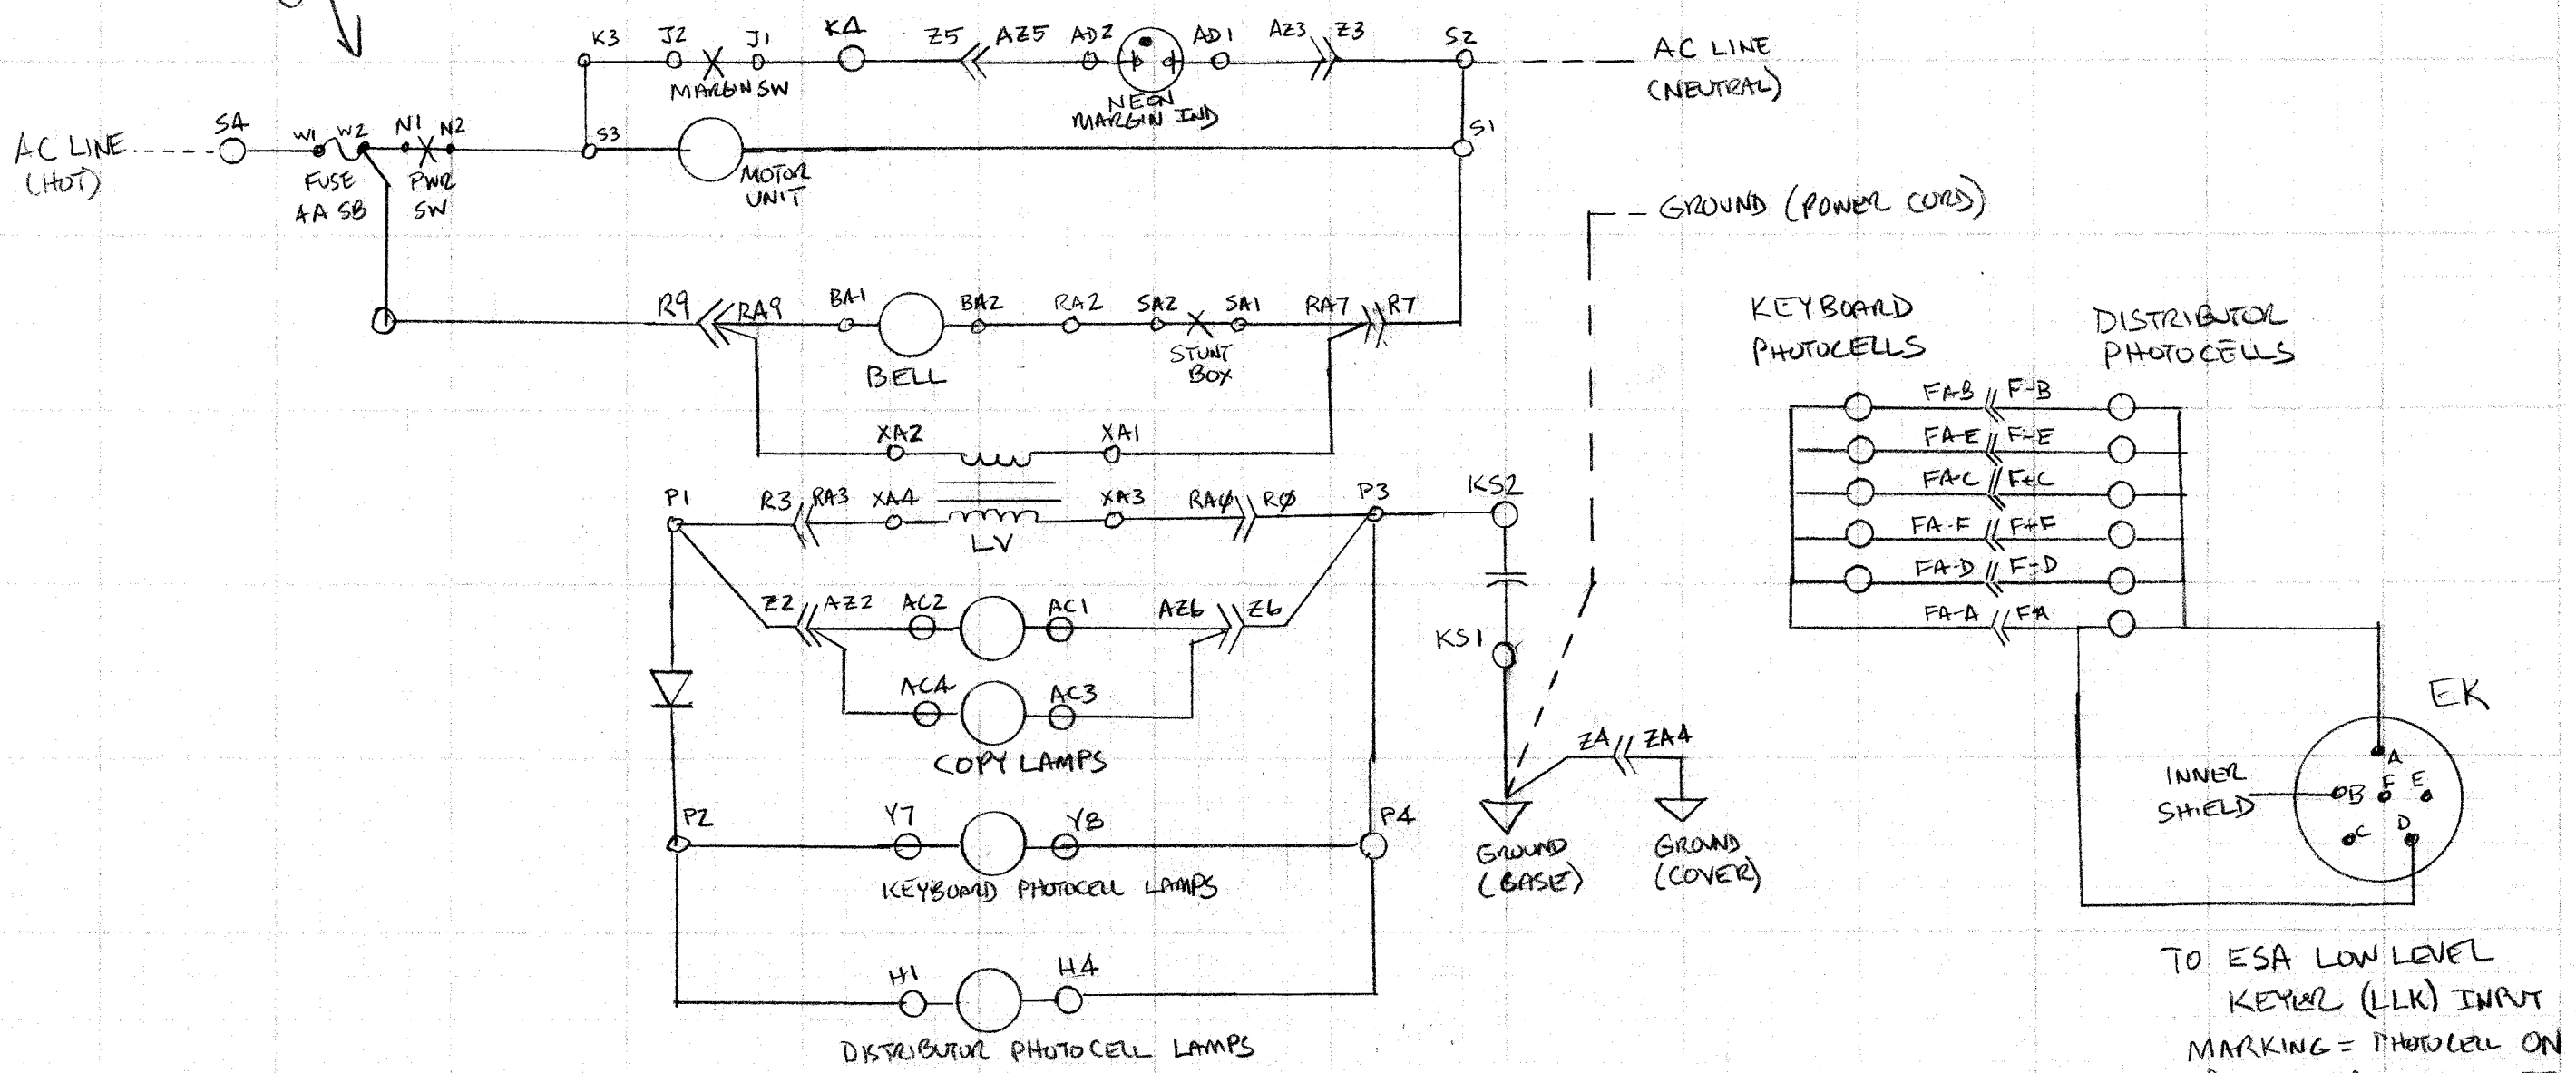 K3 J2 J1 K4 Z5 AZ5 AD2 AD1 AZ3 Z3 S2
AC LINE
(NEUTRAL)
MARGIN SW
NEON
MARGIN IND
AC LINE
(HOT)
S4 W1 W2 N1 N2 S3 S1
FUSE
4A SB
PWR
SW
MOTOR
UNIT
GROUND (POWER CORD)
R9 RA9 BA1 BA2 RA2 SA2 SA1 RA7 R7
BELL
STUNT
BOX
XA2 XA1
P1 R3 RA3 XA4 XA3 RAØ RØ P3 KS2
LV
Z2 AZ2 AC2 AC1 AZ6 Z6
KS1
AC4 AC3
COPY LAMPS
Z4 ZA4
P2 Y7 Y8 P4
KEYBOARD PHOTOCELL LAMPS
GROUND
(BASE)
GROUND
(COVER)
H1 H4
DISTRIBUTOR PHOTOCELL LAMPS
KEYBOARD
PHOTOCELLS
DISTRIBUTOR
PHOTOCELLS
FA-B F-B
FA-E F-E
FA-C F-C
FA-F F-F
FA-D F-D
FA-A F-A
EK
INNER
SHIELD
A
B F E
C D
TO ESA LOW LEVEL
KEYER (LLK) INPUT
MARKING = PHOTOCELL ON